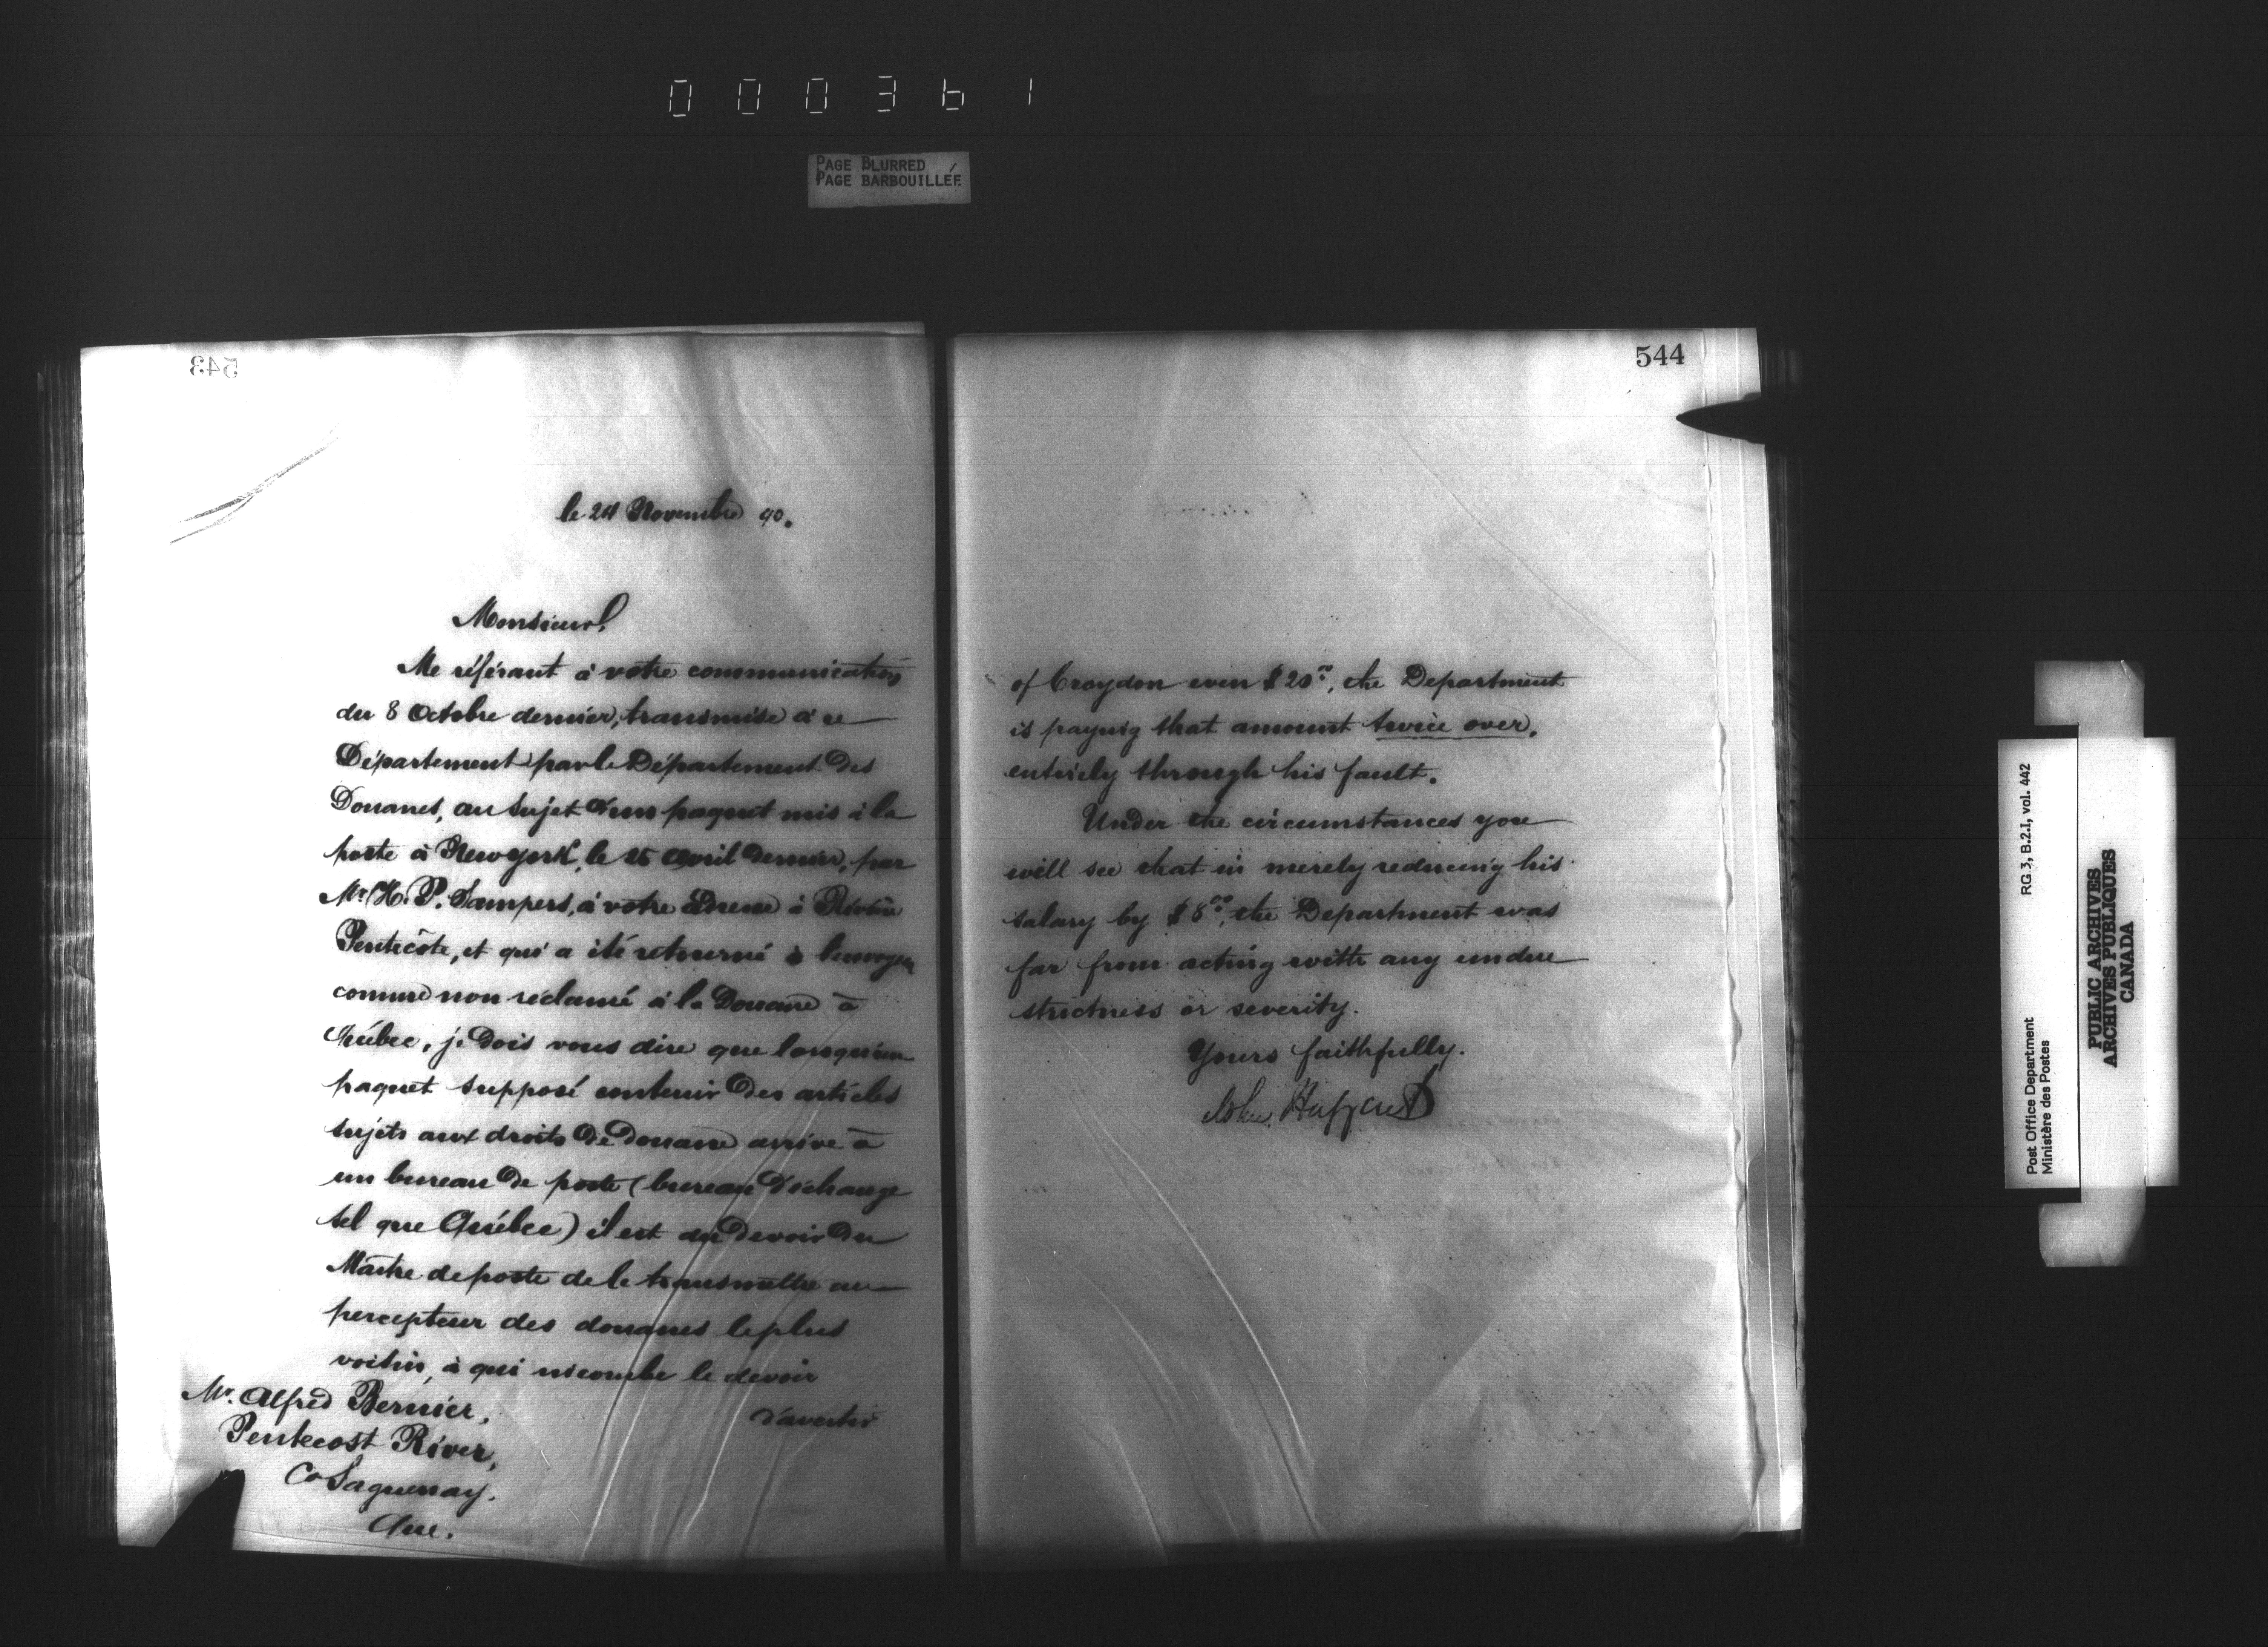 000361
PAGE BLURRED
PAGE BARBOUILLÉE
543
le 24 Novembre 90.
Monsieur,
Me référant à votre communication
du 8 Octobre dernier, transmise à ce
Département par le Département des
Douanes, au sujet d'un paquet mis à la
poste à New York, le 15 Avril dernier, par
Mr. H. P. Sampers, à votre adresse à Rivière
Pentecôte, et qui a été retourné à l'envoyeur
comme non réclamé à la Douane à
Québec, je dois vous dire que lorsqu'un
paquet supposé contenir des articles
sujets aux droits de douane arrive à
un bureau de poste (bureau d'échange
tel que Québec) il est du devoir du
Maître de poste de le transmettre au
percepteur des douanes le plus
voisin, à qui incombe le devoir
d'avertir
Mr. Alfred Bernier,
Pentecost River,
Co Saguenay.
Que.
544
of Croydon even $20.00, the Department
is paying that amount twice over,
entirely through his fault.
Under the circumstances you
will see that in merely reducing his
salary by $8.00, the Department was
far from acting with any undue
strictness or severity.
Yours faithfully.
John Haggard
Post Office Department
Ministère des Postes
RG 3, B.2.I, vol. 442
PUBLIC ARCHIVES
ARCHIVES PUBLIQUES
CANADA